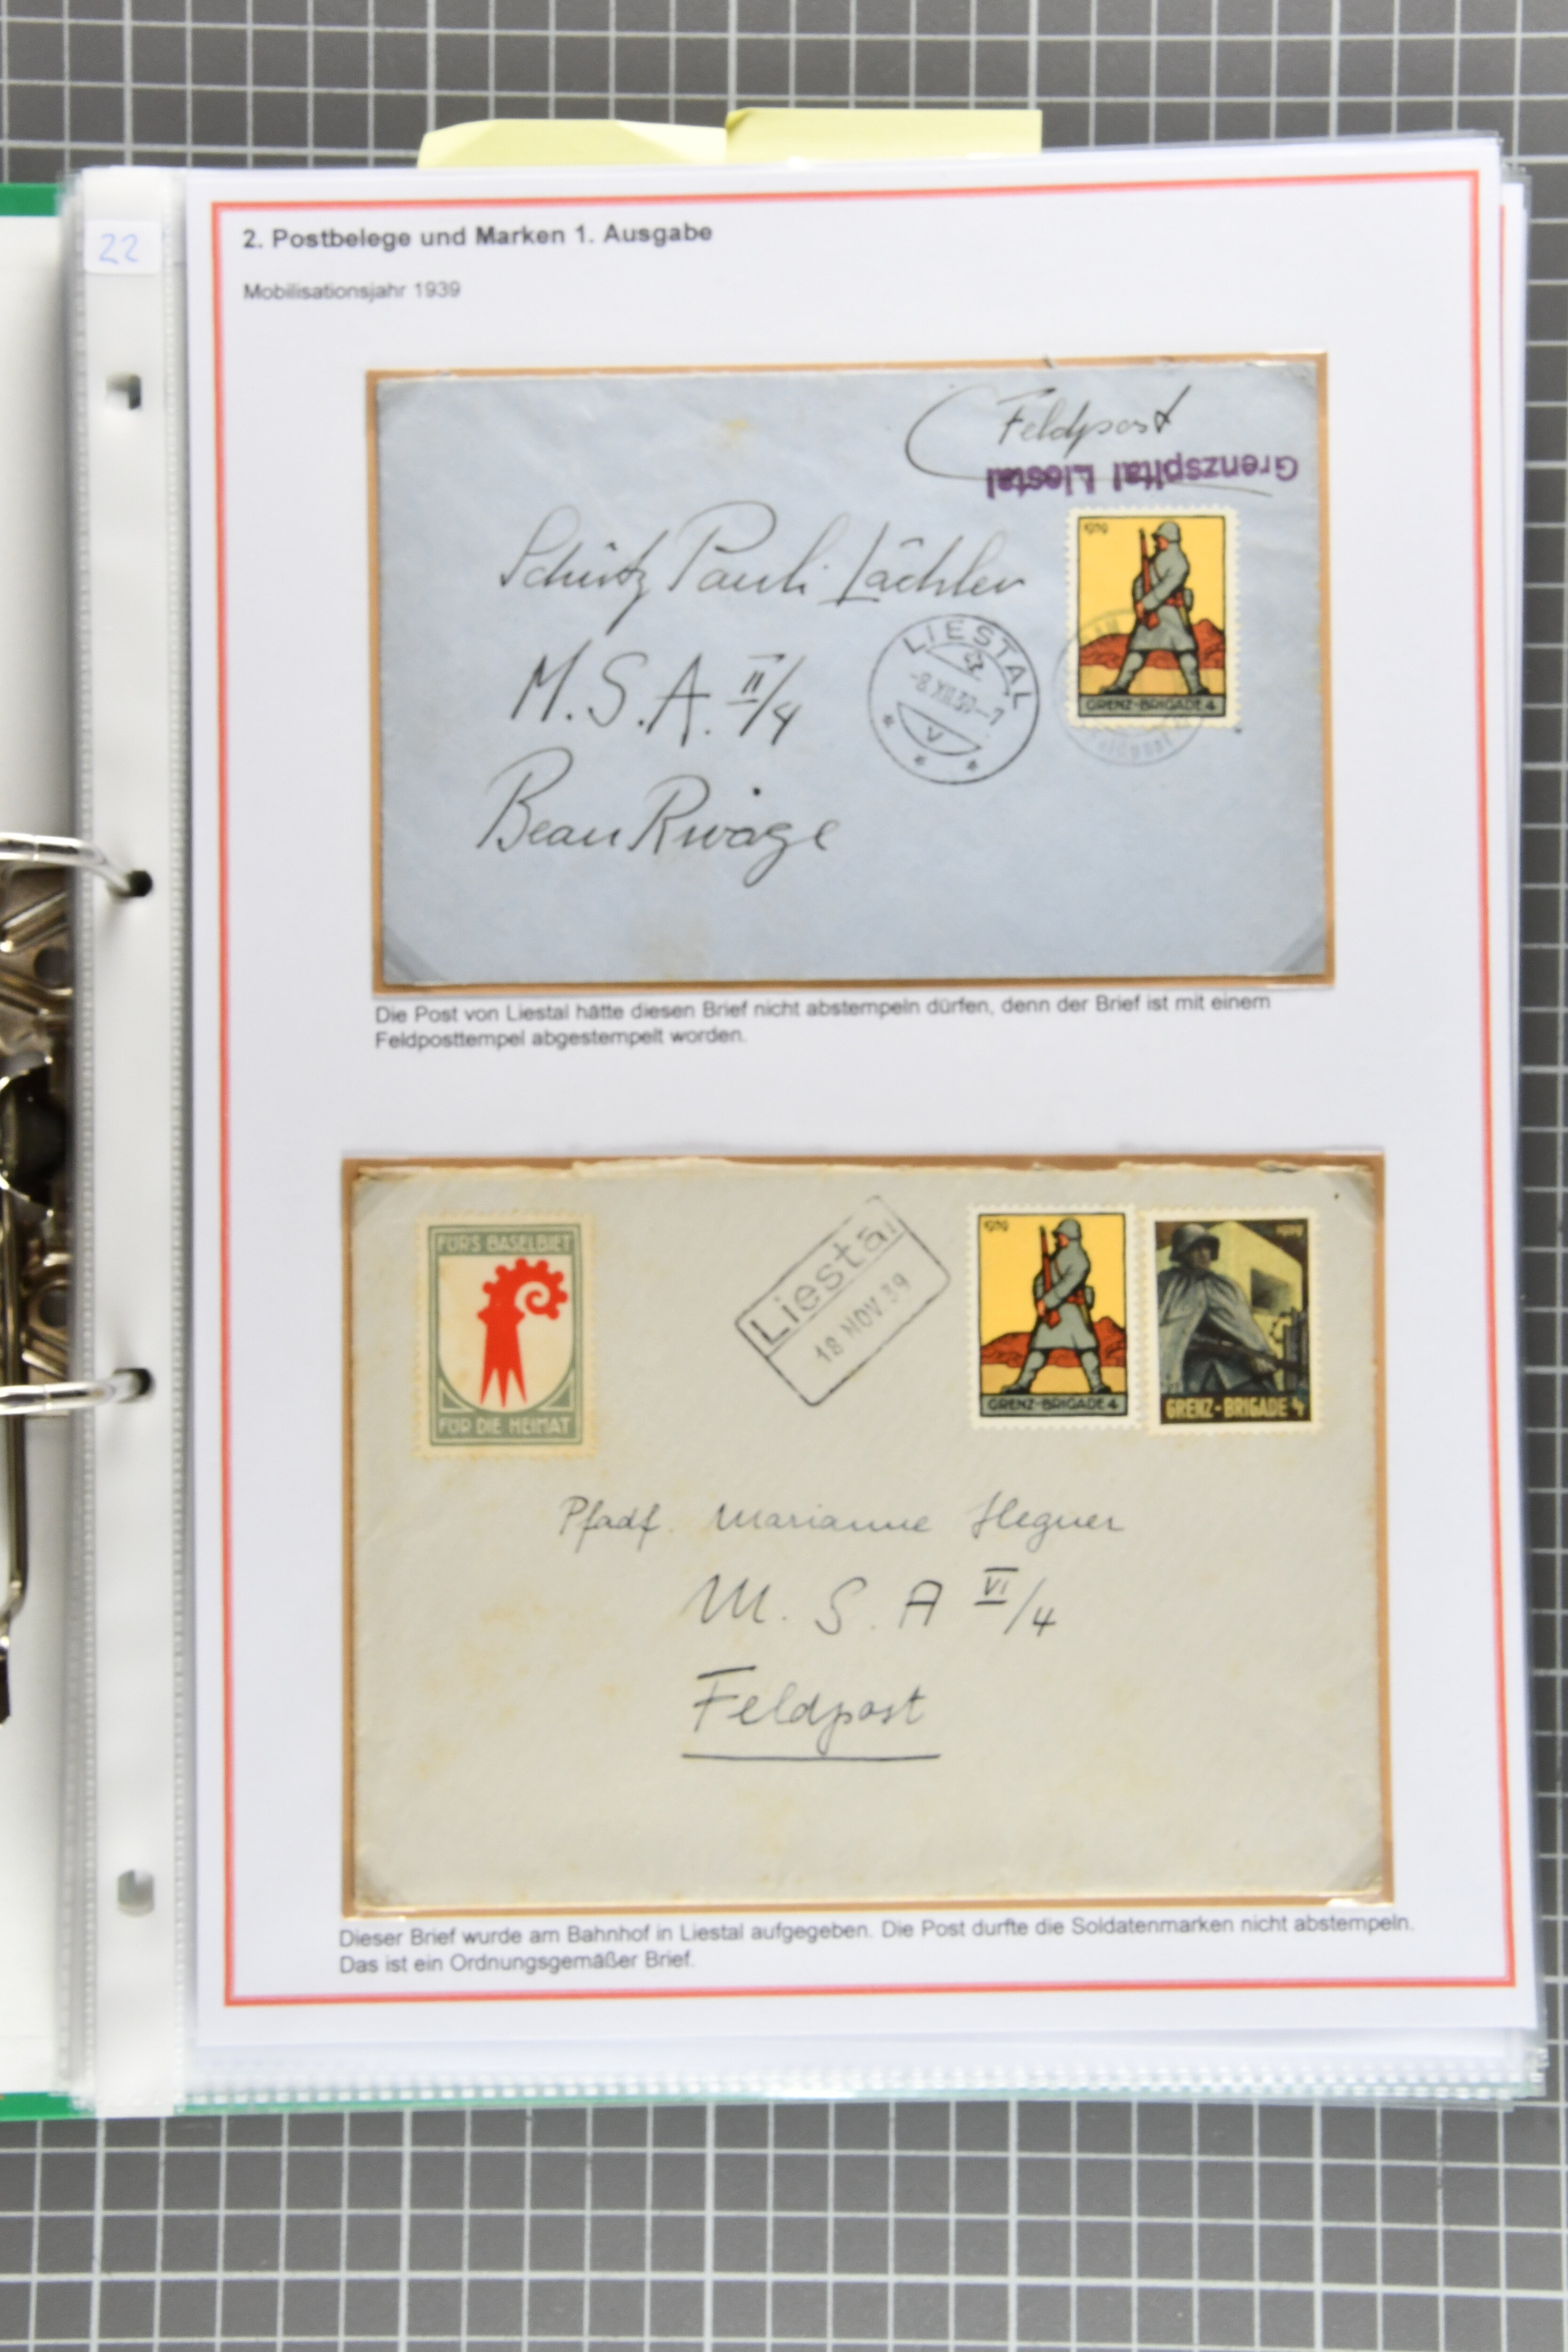 22
2. Postbelege und Marken 1. Ausgabe
Mobilisationsjahr 1939
Feldpost
Grenzspital Liestal
1939
GRENZ-BRIGADE 4
Schütz Pauli Lächler
M.S.A. II/4
Beau Rivage
LIESTAL
-8.XII.39-7
V
Die Post von Liestal hätte diesen Brief nicht abstempeln dürfen, denn der Brief ist mit einem
Feldposttempel abgestempelt worden.
FÜRS BASELBIET
FÜR DIE HEIMAT
Liestal
18 NOV. 39
1939
GRENZ-BRIGADE 4
1939
GRENZ-BRIGADE 4
Pfadf. Marianne Hegner
M. S. A VI/4
Feldpost
Dieser Brief wurde am Bahnhof in Liestal aufgegeben. Die Post durfte die Soldatenmarken nicht abstempeln.
Das ist ein Ordnungsgemäßer Brief.